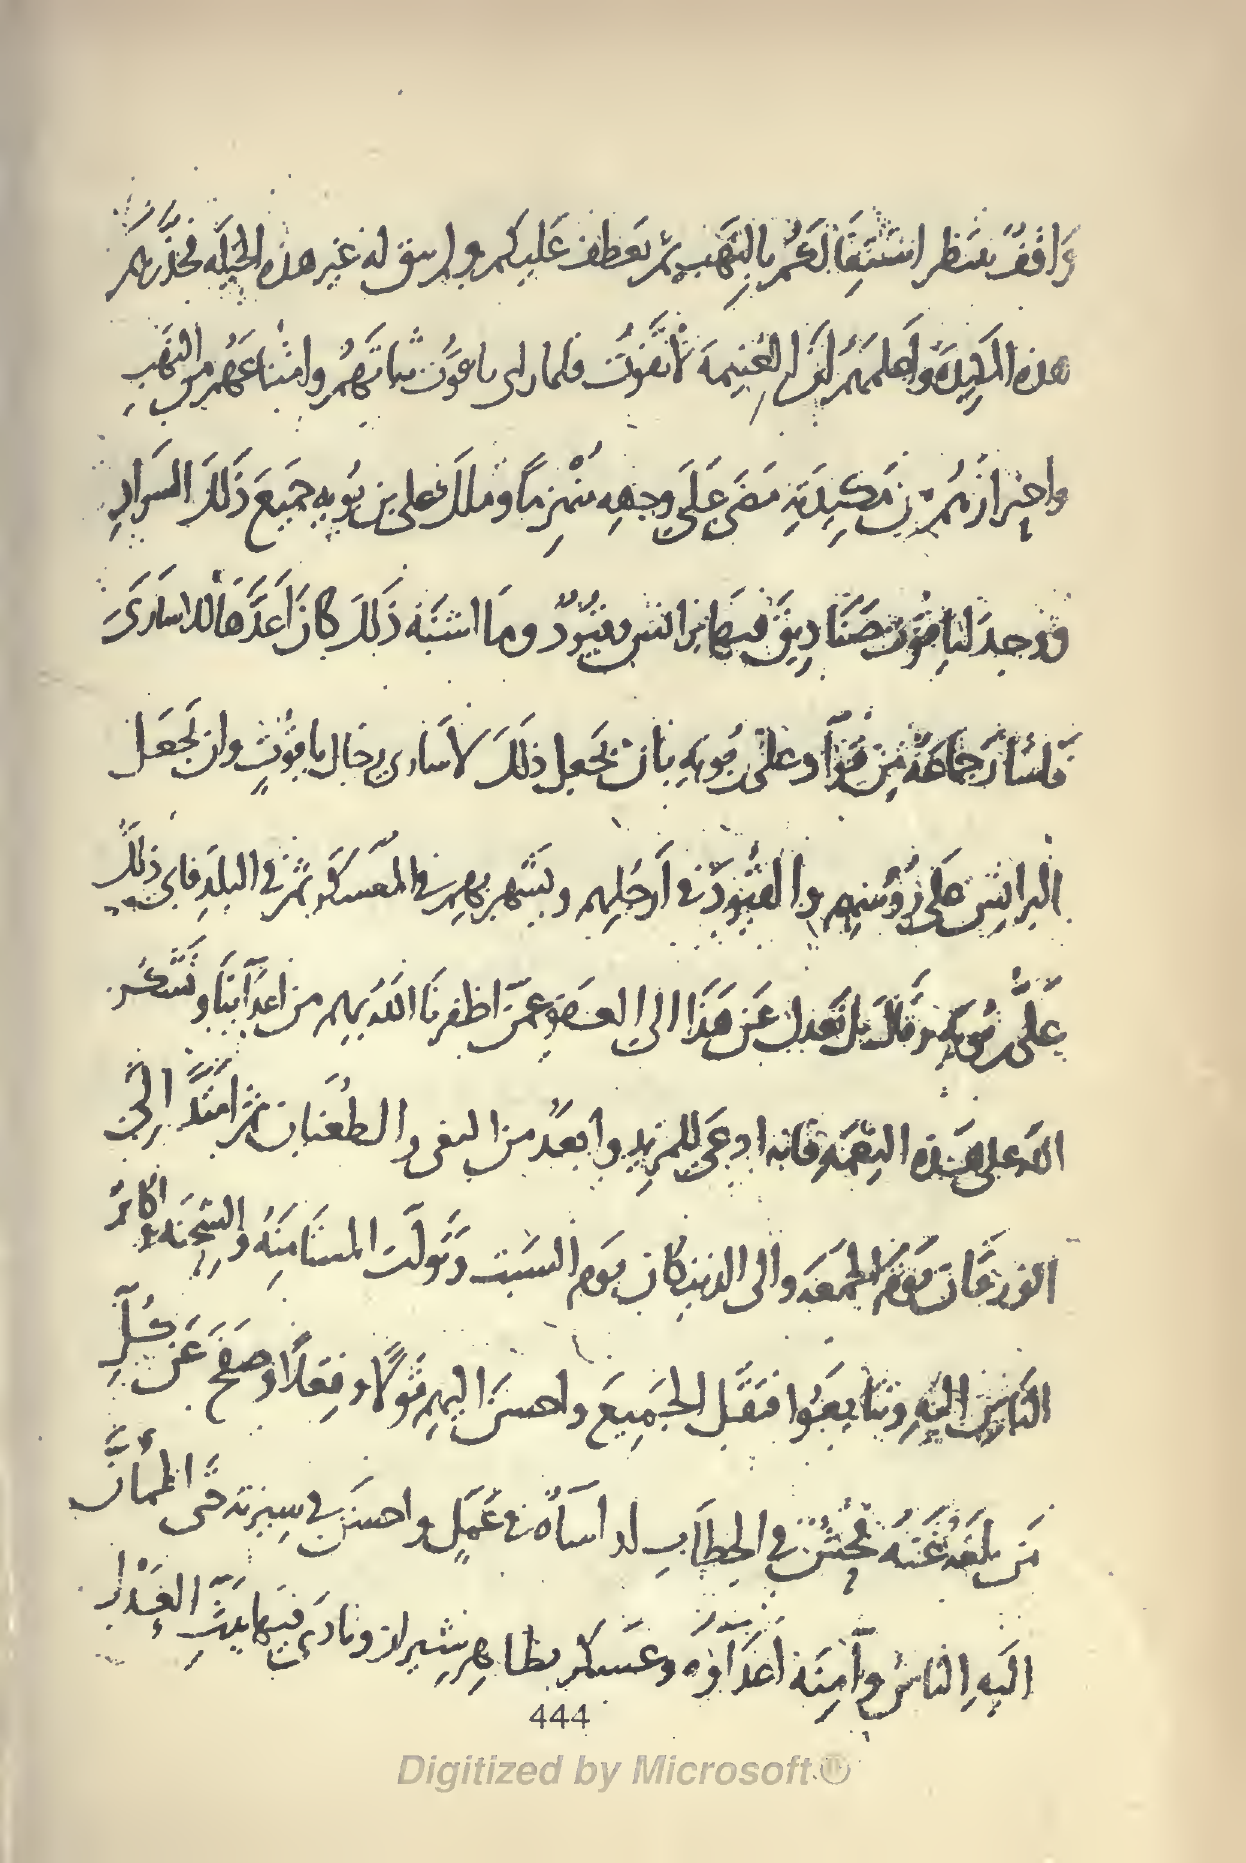 واقف ينتظر اشتغالكم بالنهب ثم يعطف عليكم ولم يبق له غير هذه الحيلة فحذرهم
هذه المكيدة واعلمهم ان الغنيمة لا تفوت فلما راى ياقوت ثباتهم وامتناعهم من النهب
واحترازهم من مكيدته مضى على وجهه منهزما وملك على بن بويه جميع ذلك السواد
ووجد لياقوت صناديق فيها برانس وقيود وما اشبه ذلك كان اعدها للاسارى
فاشار جماعة من قواد على بن بويه بان يجعل ذلك لاسارى رجال ياقوت وان يجعل
البرانس على رؤسهم والقيود فى ارجلهم ويشهر بهم فى المعسكر ثم فى البلد فابى ذلك
على بن بويه وقال بل نعدل عن هذا الى العفو عمن اظفرنا الله بهم من اعدآئنا ونشكر
الله على هذه النعمة فانه ادعى للمزيد وابعد من البغى والطغيان ثم امتد الى
النوبندجان يوم الجمعة والى الدينكان يوم السبت وتوالت المستأمنة والشحنة اكابر
الناس اليه وتتابعوا فتقبل الجميع واحسن اليهم قولا وفعلا وصفح عن كل
من بلغه عنه فحش فى الخطاب له اساة فى عمل واحسن فى سيرته حتى اطمأن
اليه الناس وآمنه اعداؤه وعسكر بظاهر شيراز ونادى فيها ببث العدل
444
Digitized by Microsoft ®